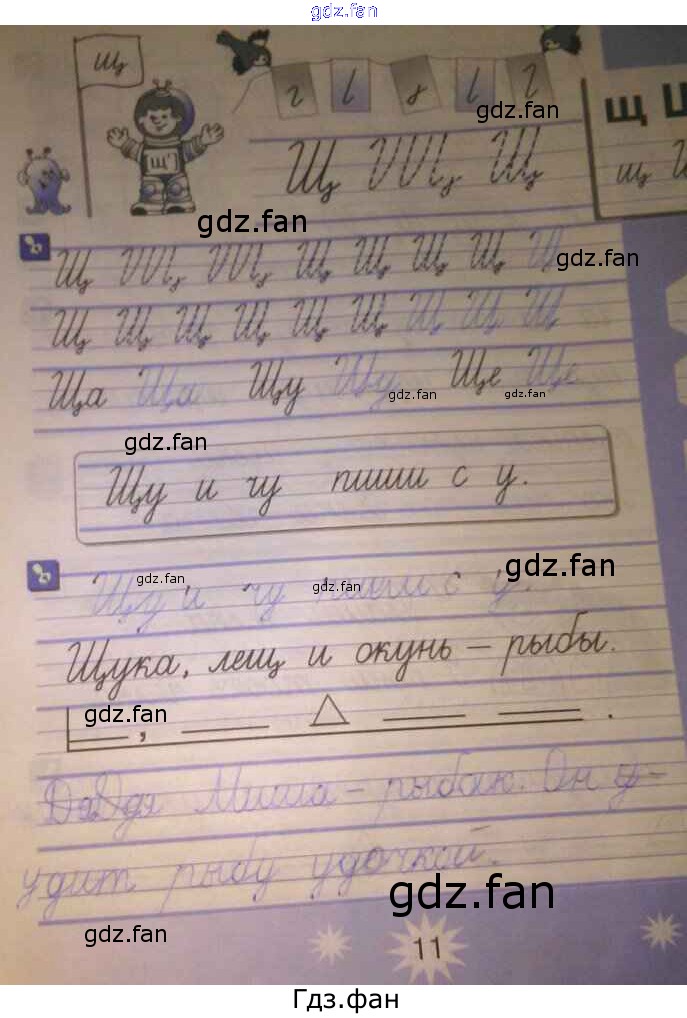 gdz.fan
щ
г l 8 l г
gdz.fan
Щ Щ
Щ Щ
щ
"Щ"
gdz.fan
Щ Щ Щ Щ Щ Щ
gdz.fan
Щ Щ Щ Щ Щ Щ Щ Щ Щ
Ща Ща Щу Щу Ще Ще
gdz.fan gdz.fan
gdz.fan
Щу и чу пиши с у.
gdz.fan
gdz.fan gdz.fan
Щу и чу пиши с у.
Щука, лещ и окунь – рыбы.
gdz.fan
Дядя Миша – рыбак. Он у-
удит рыбу удочкой.
gdz.fan
gdz.fan
11
Гдз.фан